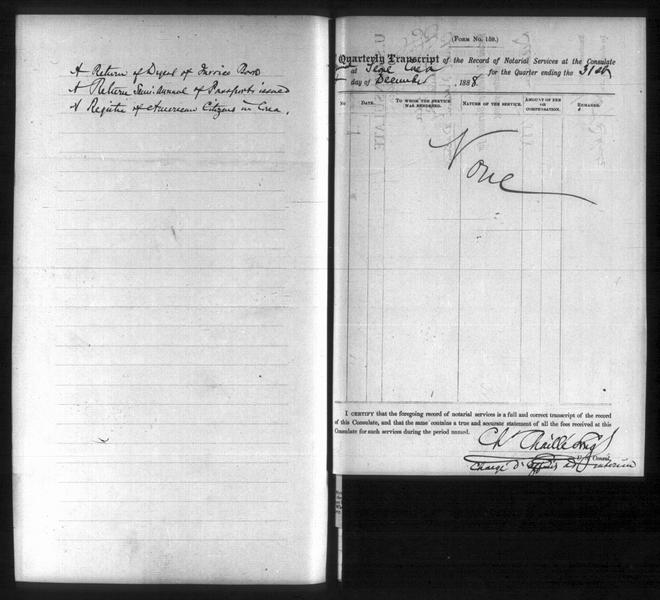 A Return of Digest of Invoice Book
A Return Semi-annual of Passports issued
A Register of American Citizens in Corea.
(Form No. 159.)
Quarterly Transcript of the Record of Notarial Services at the Consulate
at Seoul Corea for the Quarter ending the 31st
day of December 1888.
No
Date.
To whom the service was rendered.
Nature of the service.
Amount of fee or compensation.
Remarks.
None
I CERTIFY that the foregoing record of notarial services is a full and correct transcript of the record
of this Consulate, and that the same contains a true and accurate statement of all the fees received at
this Consulate for such services during the period named.
Ch Chaillé Long
U. S. Consul.
Chargé d'Affaires ad interim